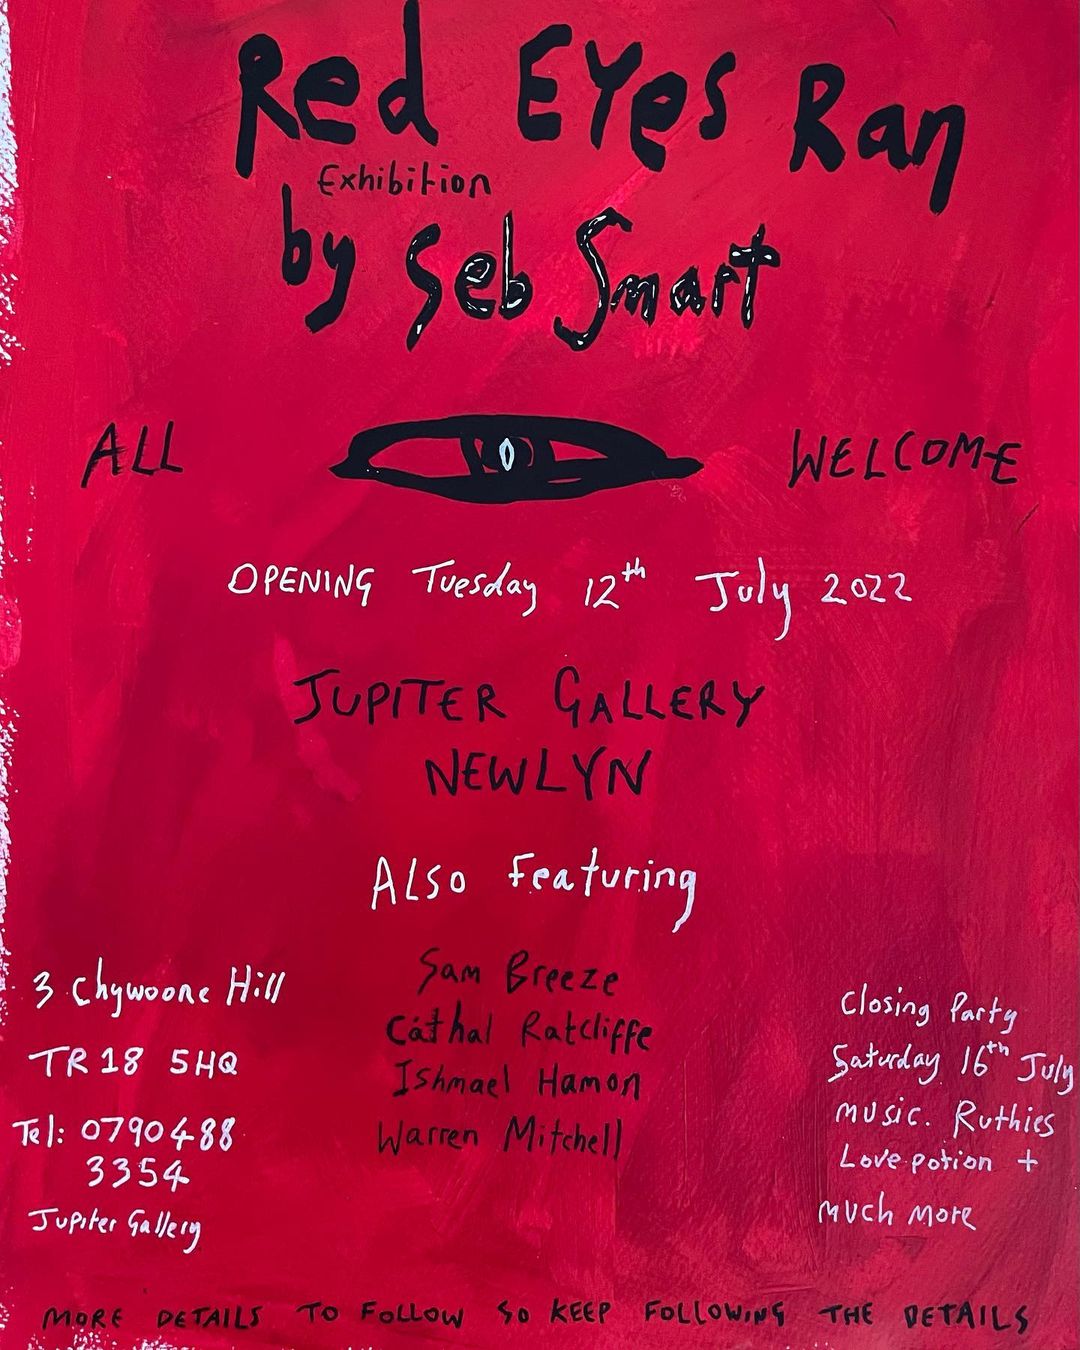 Red Eyes Ran
Exhibition
by Seb Smart
ALL WELCOME
OPENING Tuesday 12th July 2022
JUPITER GALLERY
NEWLYN
ALSO Featuring
Sam Breeze
Cathal Ratcliffe
Ishmael Hamon
Warren Mitchell
3 Chywoone Hill
TR18 5HQ
Tel: 0790488
3354
Jupiter Gallery
Closing Party
Saturday 16th July
music. Ruthies
Love potion +
much more
MORE DETAILS TO FOLLOW SO KEEP FOLLOWING THE DETAILS